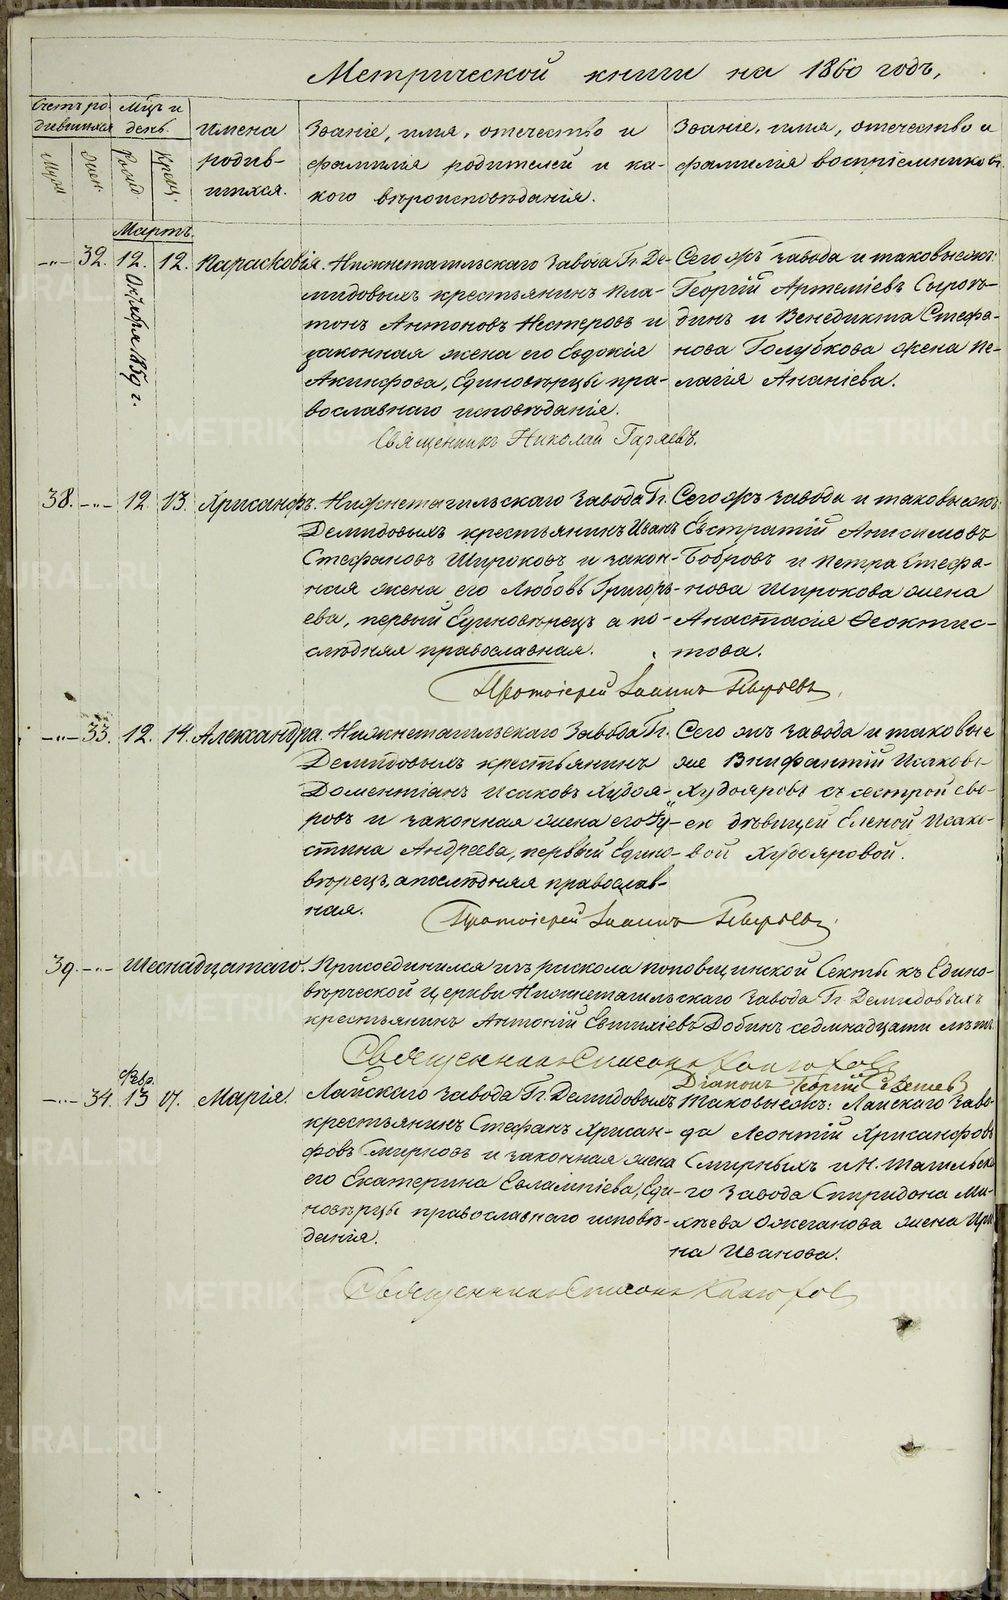 Метрической книги на 1860 годъ,
Счетъ ро-
дившихся
Мцъ и
день.
Муж
Жен.
Рожд
Крещ.
имена
родив-
шихся.
Званіе, имя, отечество и
фамилія родителей и ка-
кого вѣроисповѣданія.
Званіе, имя, отечество и
фамилія воспріемниковъ.
Мартъ.
-"- 32. 12. 12. Парасковія.
Октября 1859 г.
Нижнетагильскаго Завода Гг. Де-
мидовыхъ крестьянинъ Пла-
тонъ Антоновъ Нестеровъ и
законная жена его Евдокія
Акинфова, Единовѣрцы пра-
вославнаго исповѣданія.
Сего жъ завода и таковыежъ:
Георгій Артеміевъ Сыропя-
динъ и Венедикта Стефа-
нова Голубкова жена Пе-
лагія Ананіева.
Священникъ Николай Гаряевъ.
38. -"- 12. 13. Хрисанфъ.
Нижнетагильскаго завода Гг.
Демидовыхъ крестьянинъ Иванъ
Стефановъ Широковъ и закон-
ная жена его Любовь Григорь-
ева, первый Единовѣрецъ а по-
слѣдняя православная.
Сего жъ завода и таковыежъ
Евстратій Анисимовъ
Бобровъ и Петра Стефа-
нова Широкова жена
Анастасія Феоктис-
това.
Протоіерей Іоаннъ
-"- 33. 12. 14. Александра
Нижнетагильскаго Завода Гг.
Демидовыхъ крестьянинъ
Доментіанъ Исаковъ Худоя-
ровъ и законная жена его Іу-
стина Андреева, первый Едино-
вѣрецъ, а послѣдняя православ-
ная.
Сего жъ завода и таковые
же Внифантій Исаковъ
Худояровъ съ сестрой сво-
ей дѣвицей Еленой Исако-
вой Худояровой.
Протоіерей Іоаннъ
39. -"- Шеснадцатаго.
Присоединился изъ раскола поповщинской Секты къ Едино-
вѣрческой церкви Нижнетагильскаго завода Гг. Демидовыхъ
крестьянинъ Антоній Евтихіевъ Добинъ седмнадцати лѣтъ
Священникъ Симеонъ
Діаконъ Георгій
Февр.
-"- 34. 13 17. Марія.
Лайскаго завода Гг. Демидовыхъ
крестьянинъ Стефанъ Хрисан-
фовъ Смирновъ и законная жена
его Екатерина Евлампіева, Еди-
новѣрцы православнаго исповѣ-
данія.
таковыежъ: Лайскаго заво-
да Леонтій Хрисанфовъ
Смирныхъ и Н. Тагильска-
го завода Спиридона Ми-
хѣева Ожеганова жена Ири-
на Иванова.
Священникъ Симеонъ